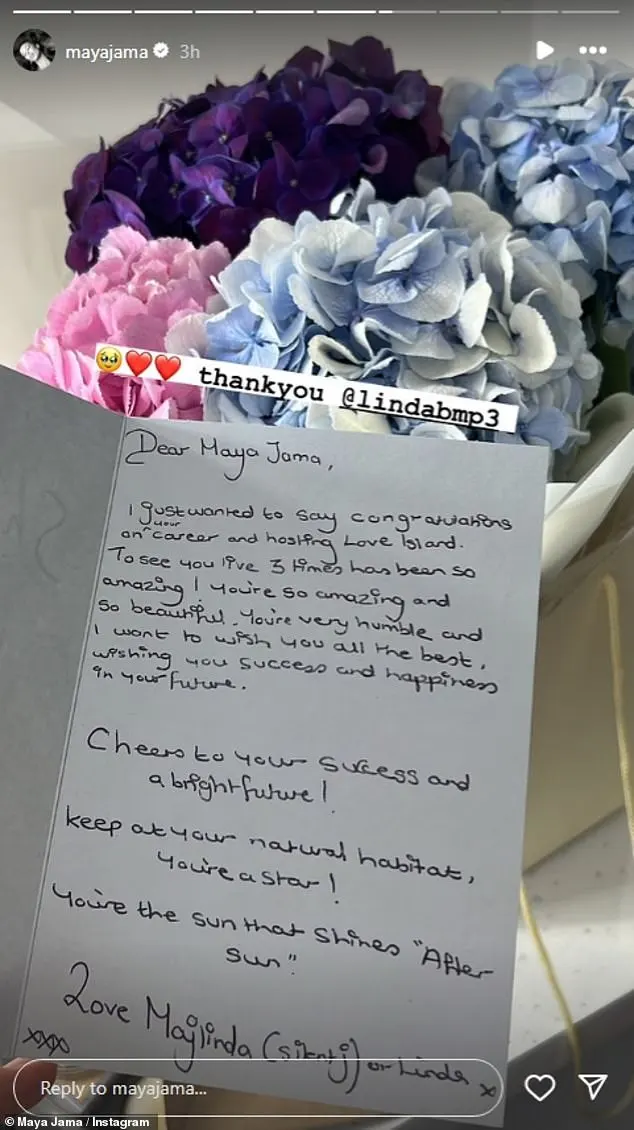 mayajama 3h
thankyou @lindabmp3
Dear Maya Jama,
I just wanted to say congratulations
your
on ^ career and hosting Love Island.
To see you live 3 times has been so
amazing! You're so amazing and
so beautiful. You're very humble and
I want to wish you all the best,
wishing you success and happiness
in your future.
Cheers to your sucess and
a bright future!
keep at your natural habitat,
you're a star!
You're the sun that shines "After
Sun".
Love Majlinda (silent j) or Linda x
xxxx
Reply to mayajama...
© Maya Jama / Instagram